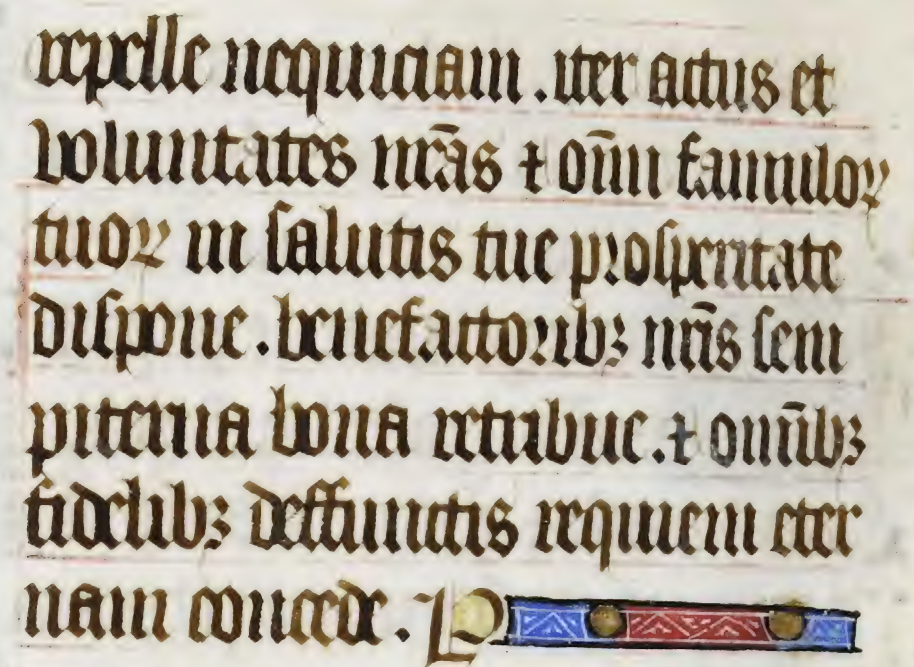 repelle nequiciam . iter actus et
voluntates nr̄as ⁊ om̄i famuloꝝ
tuoꝝ in salutis tue prosperitate
dispone . benefactoribꝫ nr̄is sem
piterna bona retribue . ⁊ omnībꝫ
fidelibꝫ deffunctis requiem eter
nam concede . P